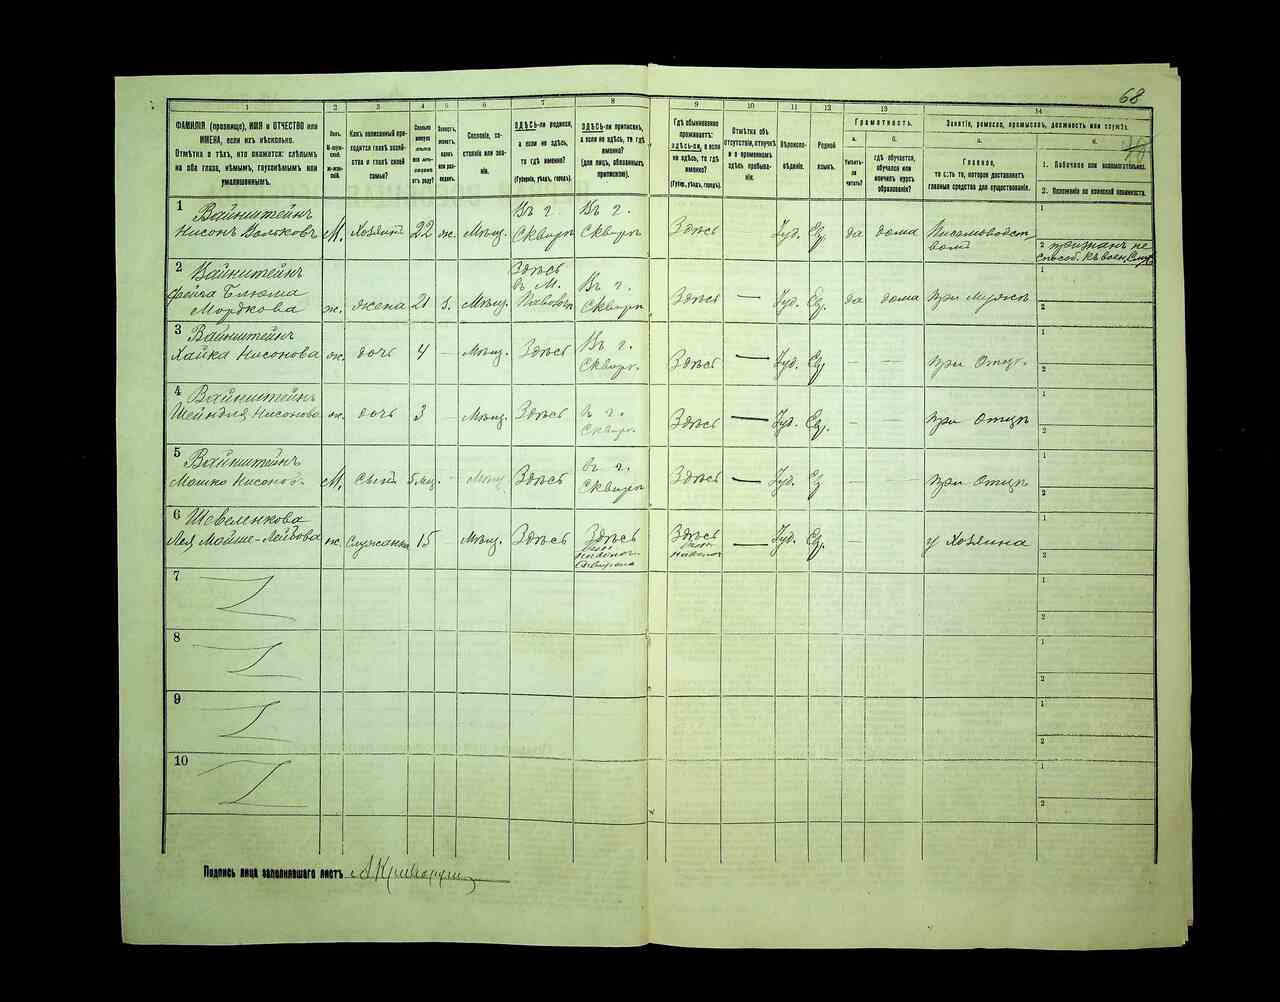 68
1 2 3 4 5 6 7 8 9 10 11 12 13 14
ФАМИЛІЯ (прозвище), ИМЯ и ОТЧЕСТВО или
ИМЕНА, если ихъ нѣсколько.
Отмѣтка о тѣхъ, кто окажется: слѣпымъ
на оба глаза, нѣмымъ, глухонѣмымъ или
умалишеннымъ.
Полъ.
М-муж-
ской.
Ж-жен-
скій.
Какъ записанный при-
ходится главѣ хозяй-
ства и главѣ своей
семьи?
Сословіе, со-
стояніе или зва-
ніе.
ЗДѢСЬ-ли родился,
а если не здѣсь,
то гдѣ именно?
(Губернія, уѣздъ, городъ).
ЗДѢСЬ-ли приписанъ,
а если не здѣсь, то гдѣ
именно?
(для лицъ, обязанныхъ
припиской).
Гдѣ обыкновенно
проживаетъ:
здѣсь-ли, а если
не здѣсь, то гдѣ
именно?
(Губер., уѣздъ, городъ).
Отмѣтка объ
отсутствіи, отлучкѣ
и о временномъ
здѣсь пребыва-
ніи.
Вѣроиспо-
вѣданіе.
Родной
языкъ.
Грамотность.
а.
Умѣетъ-
ли
читать?
б.
гдѣ обучается,
обучался или
кончилъ курсъ
образованія?
Занятіе, ремесло, промыселъ, должность или служба.
а.
Главное,
то есть то, которое доставляетъ
главныя средства для существованія.
б.
1. Побочное или вспомогательное.
2. Положеніе по воинской повинности.
1 Вайнштейнъ
Нисонъ Вольковъ М. Хозяинъ 22 ж. Мѣщ. Въ г. Сквирѣ Въ г. Сквирѣ Здѣсь Іуд. Ев. да дома Письмоводст-
вомъ
1
2 признанъ не
способ. къ воен. Служ.
2 Вайнштейнъ
Фейга Блюма
Мордкова ж. жена 21 з. Мѣщ. Здѣсь въ М. Въ г. Сквирѣ Здѣсь — Іуд. Ев. да дома При Мужѣ
1
2
3 Вайнштейнъ
Хайка Нисонова ж. дочь 4 — Мѣщ. Здѣсь Въ г. Сквирѣ Здѣсь — Іуд. Ев. — — При Отцѣ
1
2
4 Вайнштейнъ
Шейндля Нисонова ж. дочь 3 — Мѣщ. Здѣсь Въ г. Сквирѣ Здѣсь — Іуд. Ев. — — При Отцѣ
1
2
5 Вайнштейнъ
Мошко Нисонов. М. Сынъ 5 мц. — Мѣщ. Здѣсь Въ г. Сквирѣ Здѣсь — Іуд. Ев. — — При Отцѣ
1
2
6 Шевеленкова
Лея Мойше-Лейбова ж. Служанка 15 Мѣщ. Здѣсь Здѣсь Здѣсь — Іуд. Ев. — у Хозяина
1
2
7
1
2
8
1
2
9
1
2
10
1
2
Подпись лица заполнявшаго листъ